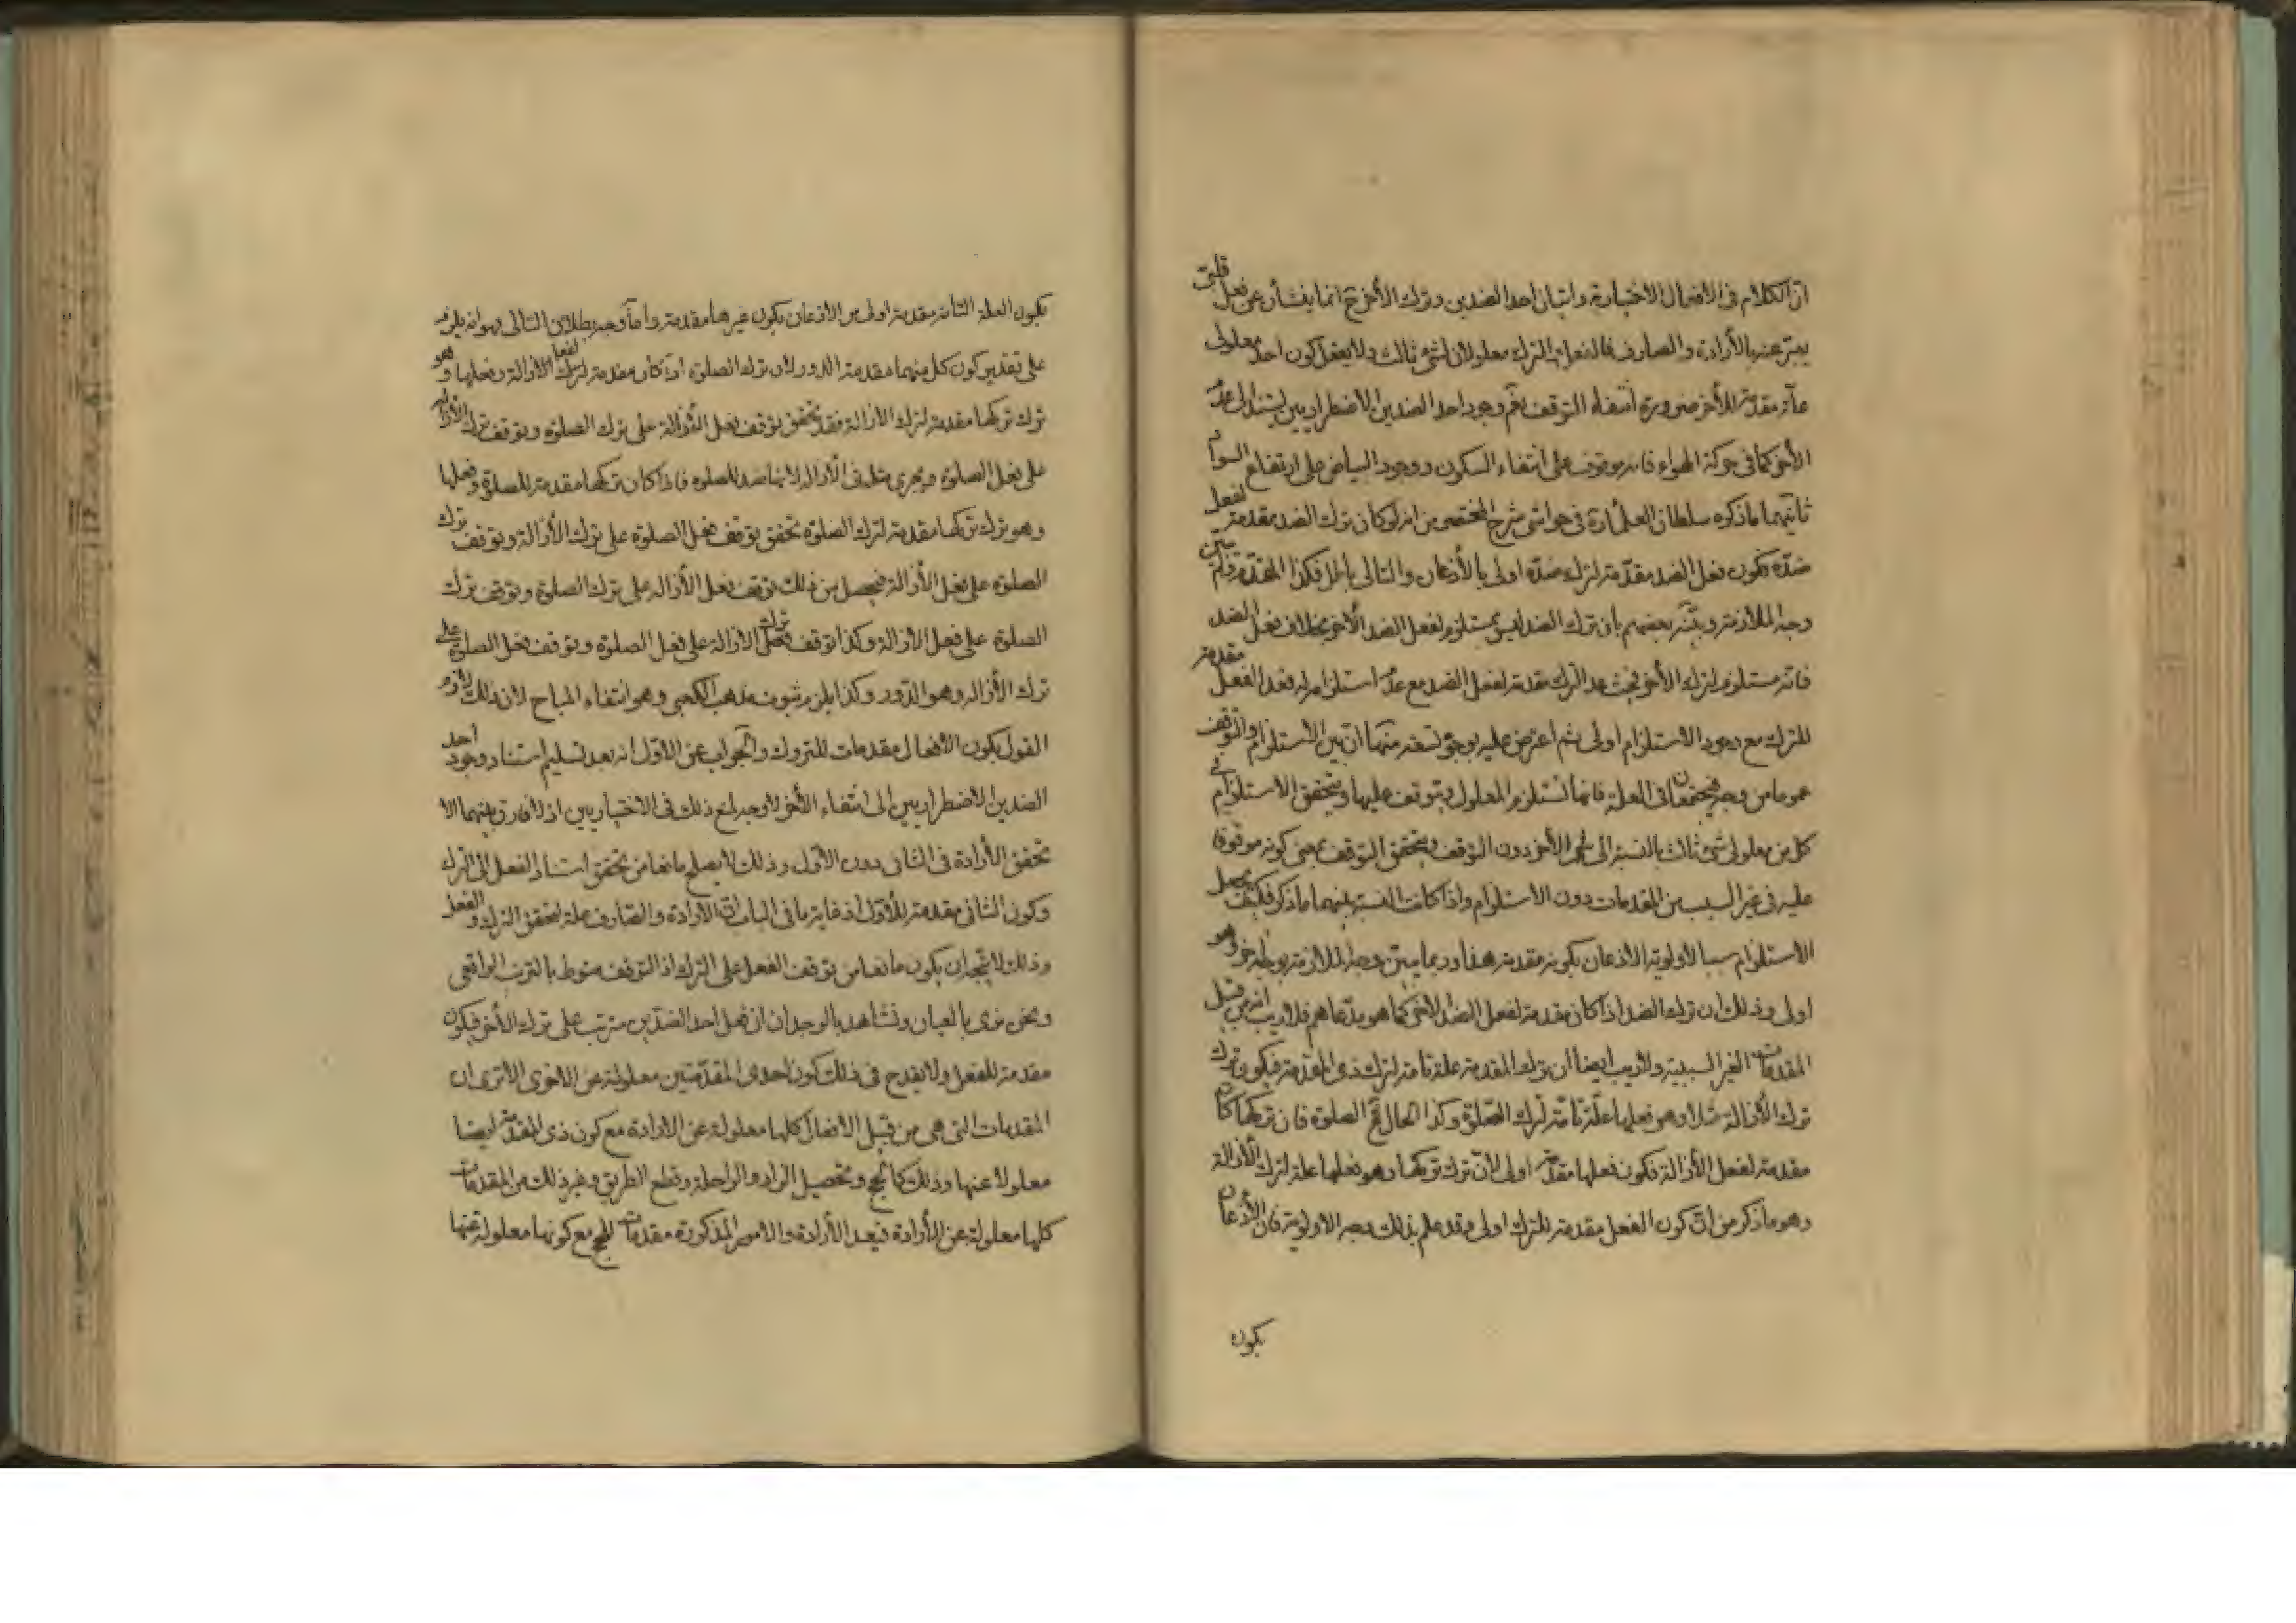 ان الكلام فى الافعال الاختيارية واتيان احد الضدين وترك الأخر ح انما ينشأن عن فعل قلبى
يعبر عنه بالأرادة والصارف فالفعل والترك معلولان لشئ ثالث ولا يعقل كون احد معلولى
علّة مقدمة للأخر ضرورة انتفاء التوقف نعم وجود احد الضدين الاضطراريين يستند الى عدم
الأخر كما فى حركة الهواء فانه موقوف على انتفاء السكون ووجود البياض على ارتفاع السواد
ثانيهما ما ذكره سلطان العلماء ره فى حواشى شرح المختصر من انه لو كان ترك الضد مقدمة لفعل
ضدّه فكون فعل الضد مقدّمة لترك ضدّه اولى بالأذعان والتالى باطل فكذا المقدّم فلم يبين
وجه الملازمة وبيّنه بعضهم بان ترك الضد ليس بمستلزم لفعل الضد الأخر بخلاف فعل الضد
فانه مستلزم لترك الأخر فحيث عد الترك مقدمة لفعل الضد مع عدم استلزامه له فعد الفعل مقدمة
للترك مع وجود الاستلزام اولى ثم اعترض عليه بوجوه تسعة منها ان بين الأستلزام والتوقف
عموما من وجه فيجتمعان فى العلة فانها تستلزم المعلول ويتوقف عليها ويتحقق الاستلزام فى
كل من معلولى شئ ثالث بالنسبة الى الأخر دون التوقف ويتحقق التوقف بمعنى كونه موقوفا
عليه فى غير السبب من المقدمات دون الاستلزام واذا كانت النسبة بينهما ما ذكر فكيف يجعل
الاستلزام سببا لاولوية الاذعان بكونه مقدمة هذا وربما يبين وجه الملازمة بوجه اخر وهو
اولى وذلك ان ترك الضد اذا كان مقدمة لفعل الضد الاخر كما هو مدّعاهم فلا ريب انه من قبل
المقدمات الغير السببية ولا ريب ايضا ان ترك المقدمة علة تامة لترك ذى المقدمة فيكون ترك
ترك الأزالة مثلا وهو فعلها علّة تامّة لترك الصّلوة وكذا الحال فى الصلوة فان تركها كان
مقدمة لفعل الأزالة فكون فعلها مقدمة اولى لانّ ترك تركها وهو فعلها علة لترك الأزالة
وهو ما ذكر من انّ كون الفعل مقدمة للترك اولى وقد علم بذلك وجه الاولوية فان الأذعان
يكون
بكون العلة التامة مقدمة اولى من الاذعان بكون غيرها مقدمة واما وجه بطلان التالى فهو انه يلزم
على تقدير كون كل منهما مقدمة الدور لان ترك الصلوة اذا كان مقدمة لفعل الازالة وفعلها وهو
ترك تركها مقدمة لترك الأزالة فقد تحقق توقف فعل الأزالة على ترك الصلوة وتوقف ترك الأزالة
على فعل الصلوة ويجرى مثله فى الأزالة لانها ضد للصلوة فاذا كان تركها مقدمة للصلوة وفعلها
وهو ترك تركها مقدمة لترك الصلوة تحقق توقف فعل الصلوة على ترك الأزالة وتوقف ترك
الصلوة على فعل الأزالة فيحصل من ذلك توقف فعل الأزالة على ترك الصلوة وتوقف ترك
الصلوة على فعل الازالة وكذا توقف ترك الازالة على فعل الصلوة وتوقف فعل الصلوة على
ترك الأزالة وهو الدّور وكذا يلزم ثبوت مذهب الكعبى وهو انتفاء المباح لان ذلك لازم
القول بكون الافعال مقدمات للتروك والجواب عن الاوّل انه بعد تسليم استناد وجود احد
الضدين الاضطراريين الى انتفاء الأخر لا وجه لمنع ذلك فى الاختياريين اذ لا فارق بينهما الا
تحقق الأرادة فى الثانى دون الأوّل وذلك لا يصلح مانعا من تحقق استناد الفعل الى الترك
وكون الثانى مقدمة للأوّل اذ غاية ما فى الباب انّ الأرادة والصّارف علة لتحقق الترك والفعل
وذلك لا يتّجه ان يكون مانعا من توقف الفعل على الترك اذ التوقف منوط بالترتب الواقعى
ونحن نرى بالعيان ونشاهد بالوجدان ان فعل احد الضدّين مترتب على ترك الأخر فيكون
مقدمة للفعل ولا يقدح فى ذلك كون احدى المقدّمتين معلولة عن الاخرى الا ترى ان
المقدمات التى هى من قبيل الافعال كلها معلولة عن الارادة مع كون ذى المقدمة ايضا
معلولا عنها وذلك كالحج وتحصيل الزاد والراحلة وقطع الطريق وغير ذلك من المقدمات
كلها معلولة عن الأرادة فبعد الأرادة والامور المذكورة مقدمات للحج مع كونها معلولة عنها